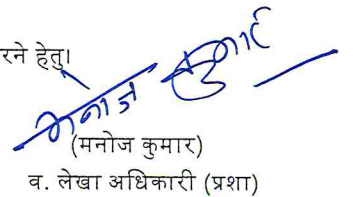 रने हेतु।
मनोज कुमार
(मनोज कुमार)
व. लेखा अधिकारी (प्रशा)